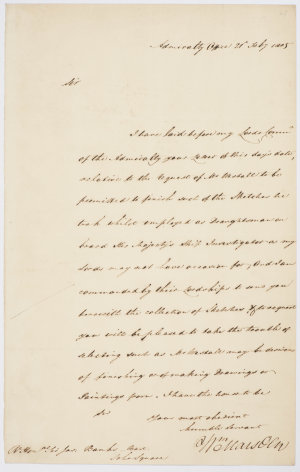 Admiralty Office 21st Feby 1805
Sir
I have laid before my Lords Commrs
of the Admiralty your Letter of this day's date,
relative to the request of Mr Westall to be
permitted to finish such of the Sketches he
took whilst employed as Draughtsman on
board His Majesty's Ship Investigator as my
Lords may not have occasion for; And I am
commanded by their Lordships to send you
herewith the collection of Sketches & to request
you will be pleased to take the trouble of
selecting such as Mr Westall may be desirous
of finishing or of making Drawings or
Paintings from. I have the honor to be
Sir
Your most obedient
humble Servant
Wm Marsden
Rt Honble Sir Jos. Banks Bart
Soho Square